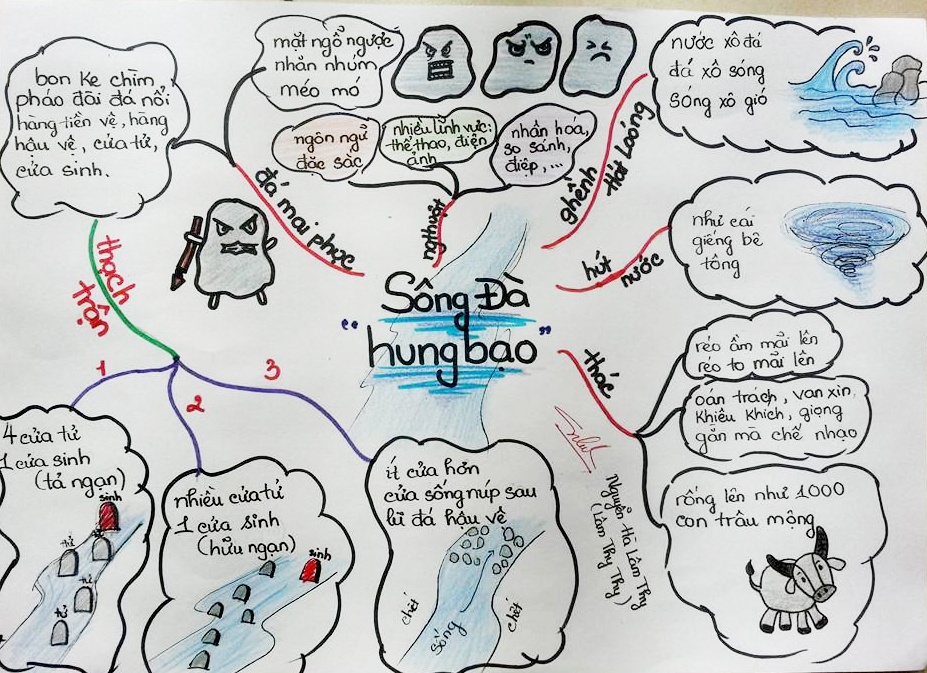 bon ke chìm,
pháo đài đá nổi
hàng tiền vệ, hàng
hậu vệ, cửa tử,
cửa sinh.
mặt ngỗ ngược
nhăn nhúm
méo mó
ngôn ngữ
đặc sắc
nhiều lĩnh vực:
thể thao, điện
ảnh
nhân hóa,
so sánh,
điệp,...
nước xô đá
đá xô sóng
sóng xô gió
như cái
giếng bê
tông
đá mai phục
ng thuật
ghềnh
Hát Loóng
hút
nước
thạch
trận
Sông Đà
"hung bạo"
thác
réo ầm mãi lên
réo to mãi lên
oán trách, van xin,
khiêu khích, giọng
gằn mà chế nhạo
rống lên như 1000
con trâu mộng
1
2
3
4 cửa tử
1 cửa sinh
(tả ngạn)
sinh
tử
tử
tử
nhiều cửa tử
1 cửa sinh
(hữu ngạn)
sinh
ít cửa hơn
cửa sống núp sau
lũ đá hậu vệ
chết
sống
chết
Nguyễn Hà Lâm Thy
(Lâm Thy Thy)